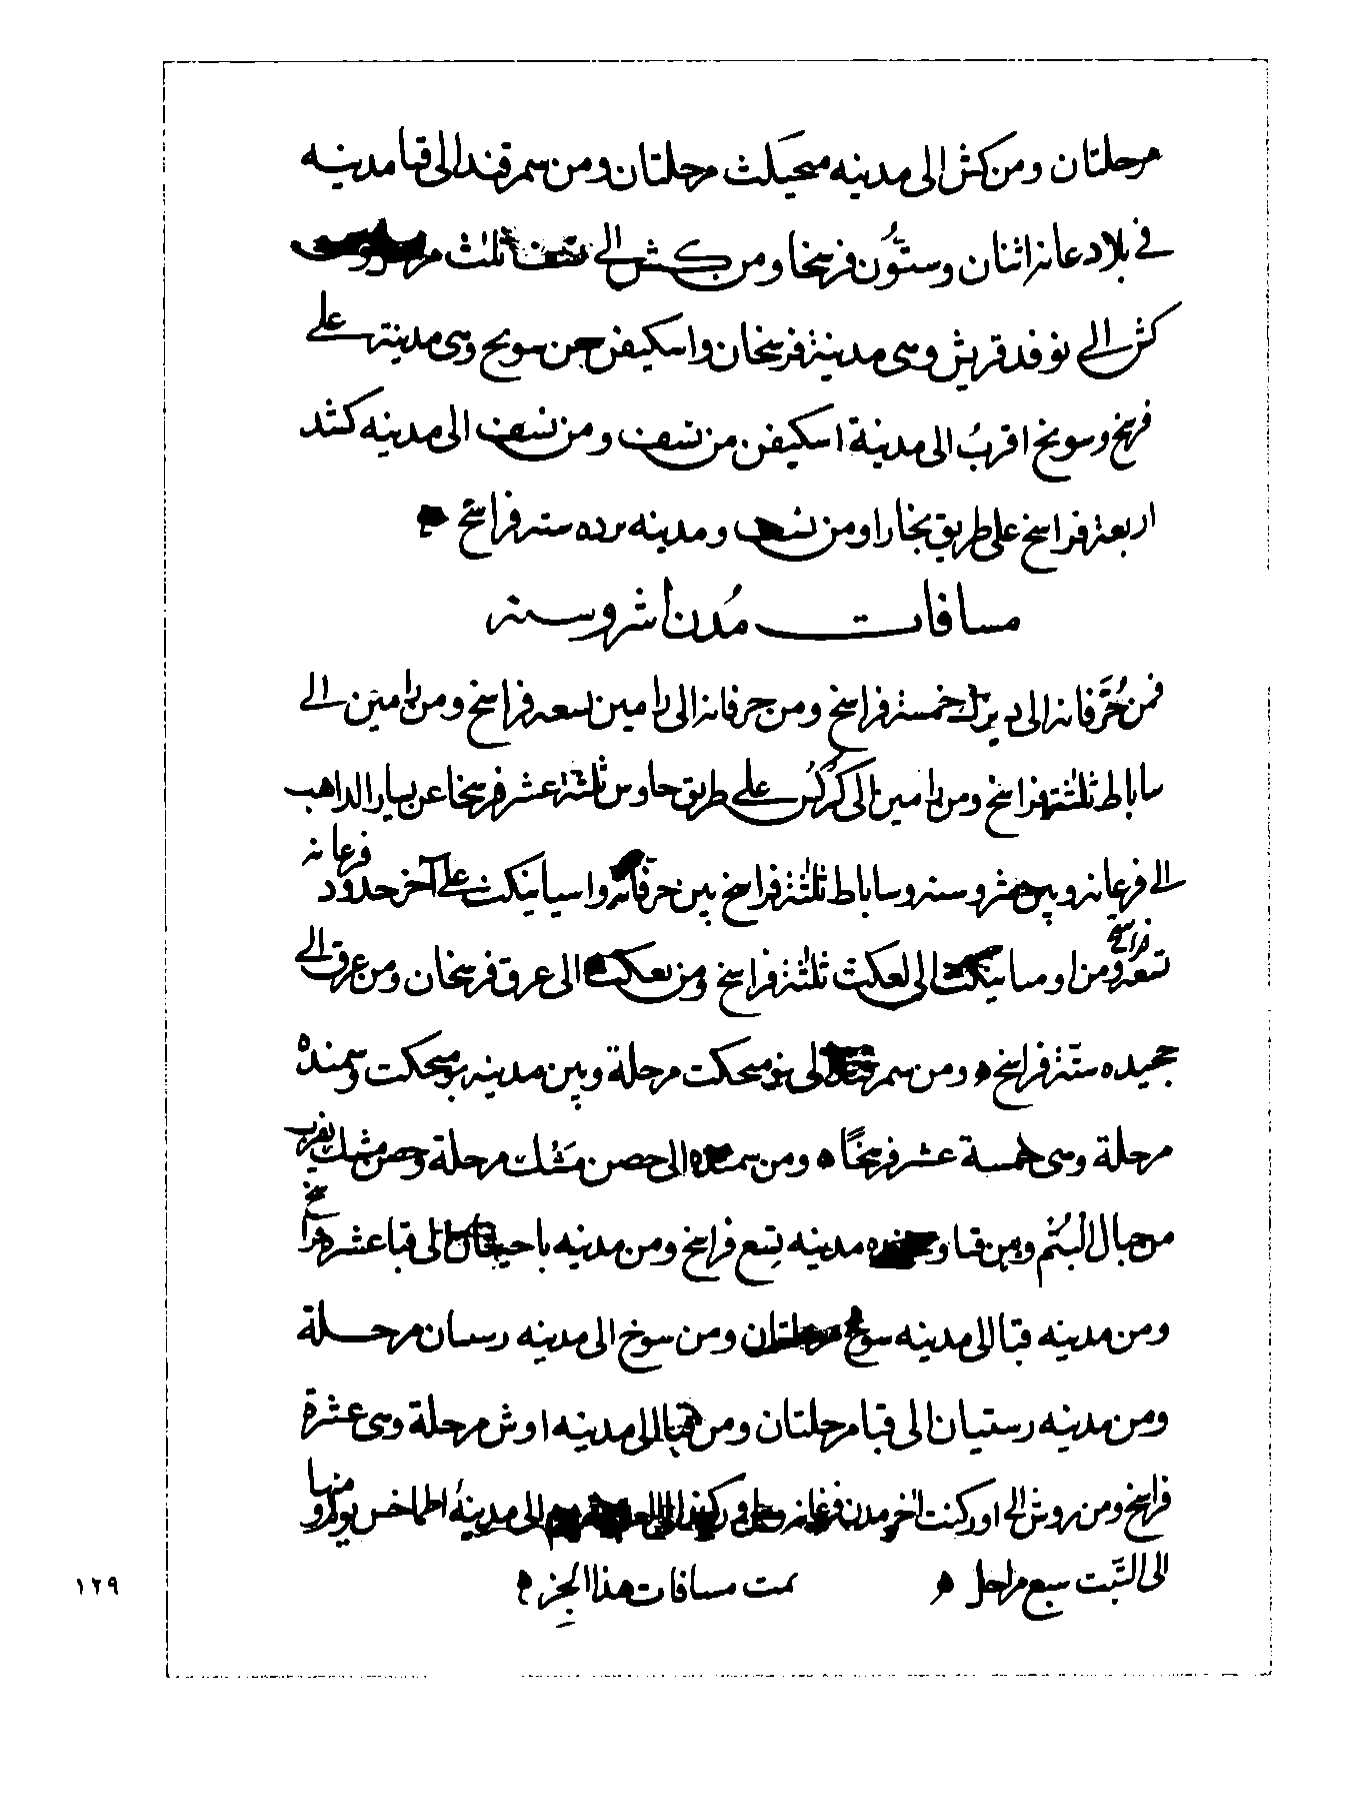 مرحلتان ومن كش الى مدينه مرحلتان ومن سمرقند الى قبا مدينه
في بلاد عانه اثنان وستون فرسخا ومن كش الى نسف ثلث
كش الى نوقد قريش وهى مدينة فرسخان واسكيفن من سونج وهى مدينة على
فرسخ وسونخ اقربُ الى مدينة اسكيفن من نسف ومن نسف الى مدينه
اربعة فراسخ على طريق بخارا ومن نسف ومدينه برده سته فراسخ
مسافات مُدن اشروسنه
فمن خُرَّقانه الى خمسة فراسخ ومن حرقانه الى رامين تسعه فراسخ ومن رامين الى
ساباط ثلثة فراسخ ومن رامين الى كُركُس على طريق حاوس ثلثة عشر فرسخا عن يسار الداهب
الى فرعانه وبين وساباط ثلثة فراسخ بين واسيانيكت على آخر حدود فرعانه
تسعه فراسخ ومن الى لعكت ثلثة فراسخ ومن نعكت الى عرق فرسخان ومن عرق الى
ستّة فراسخ ه ومن سمرقند الى بومحكت مرحلة وبين مدينه بومحكت وسمنده
مرحلة وهى خمسة عشر فرسخًا ه ومن سمنده الى حصن مَسُك مرحلة وحصن مسك بقرب
من جبال البُتُم ومن قبا مدينه تسع فراسخ ومن مدينه الى قبا عشر فراسخ
ومن مدينه قبا الى مدينه سوخ مرحلتان ومن سوخ الى مدينه رستان مرحلة
ومن مدينه رستيان الى قبا مرحلتان ومن قبا الى مدينه اوش مرحلة وهى عشرة
فراسخ ومن روش الى اوركنت اخر مدن فرغانه الى مدينة منها
الى التبت سبع مراحل ه تمت مسافات هذا الجز ه
١٢٩